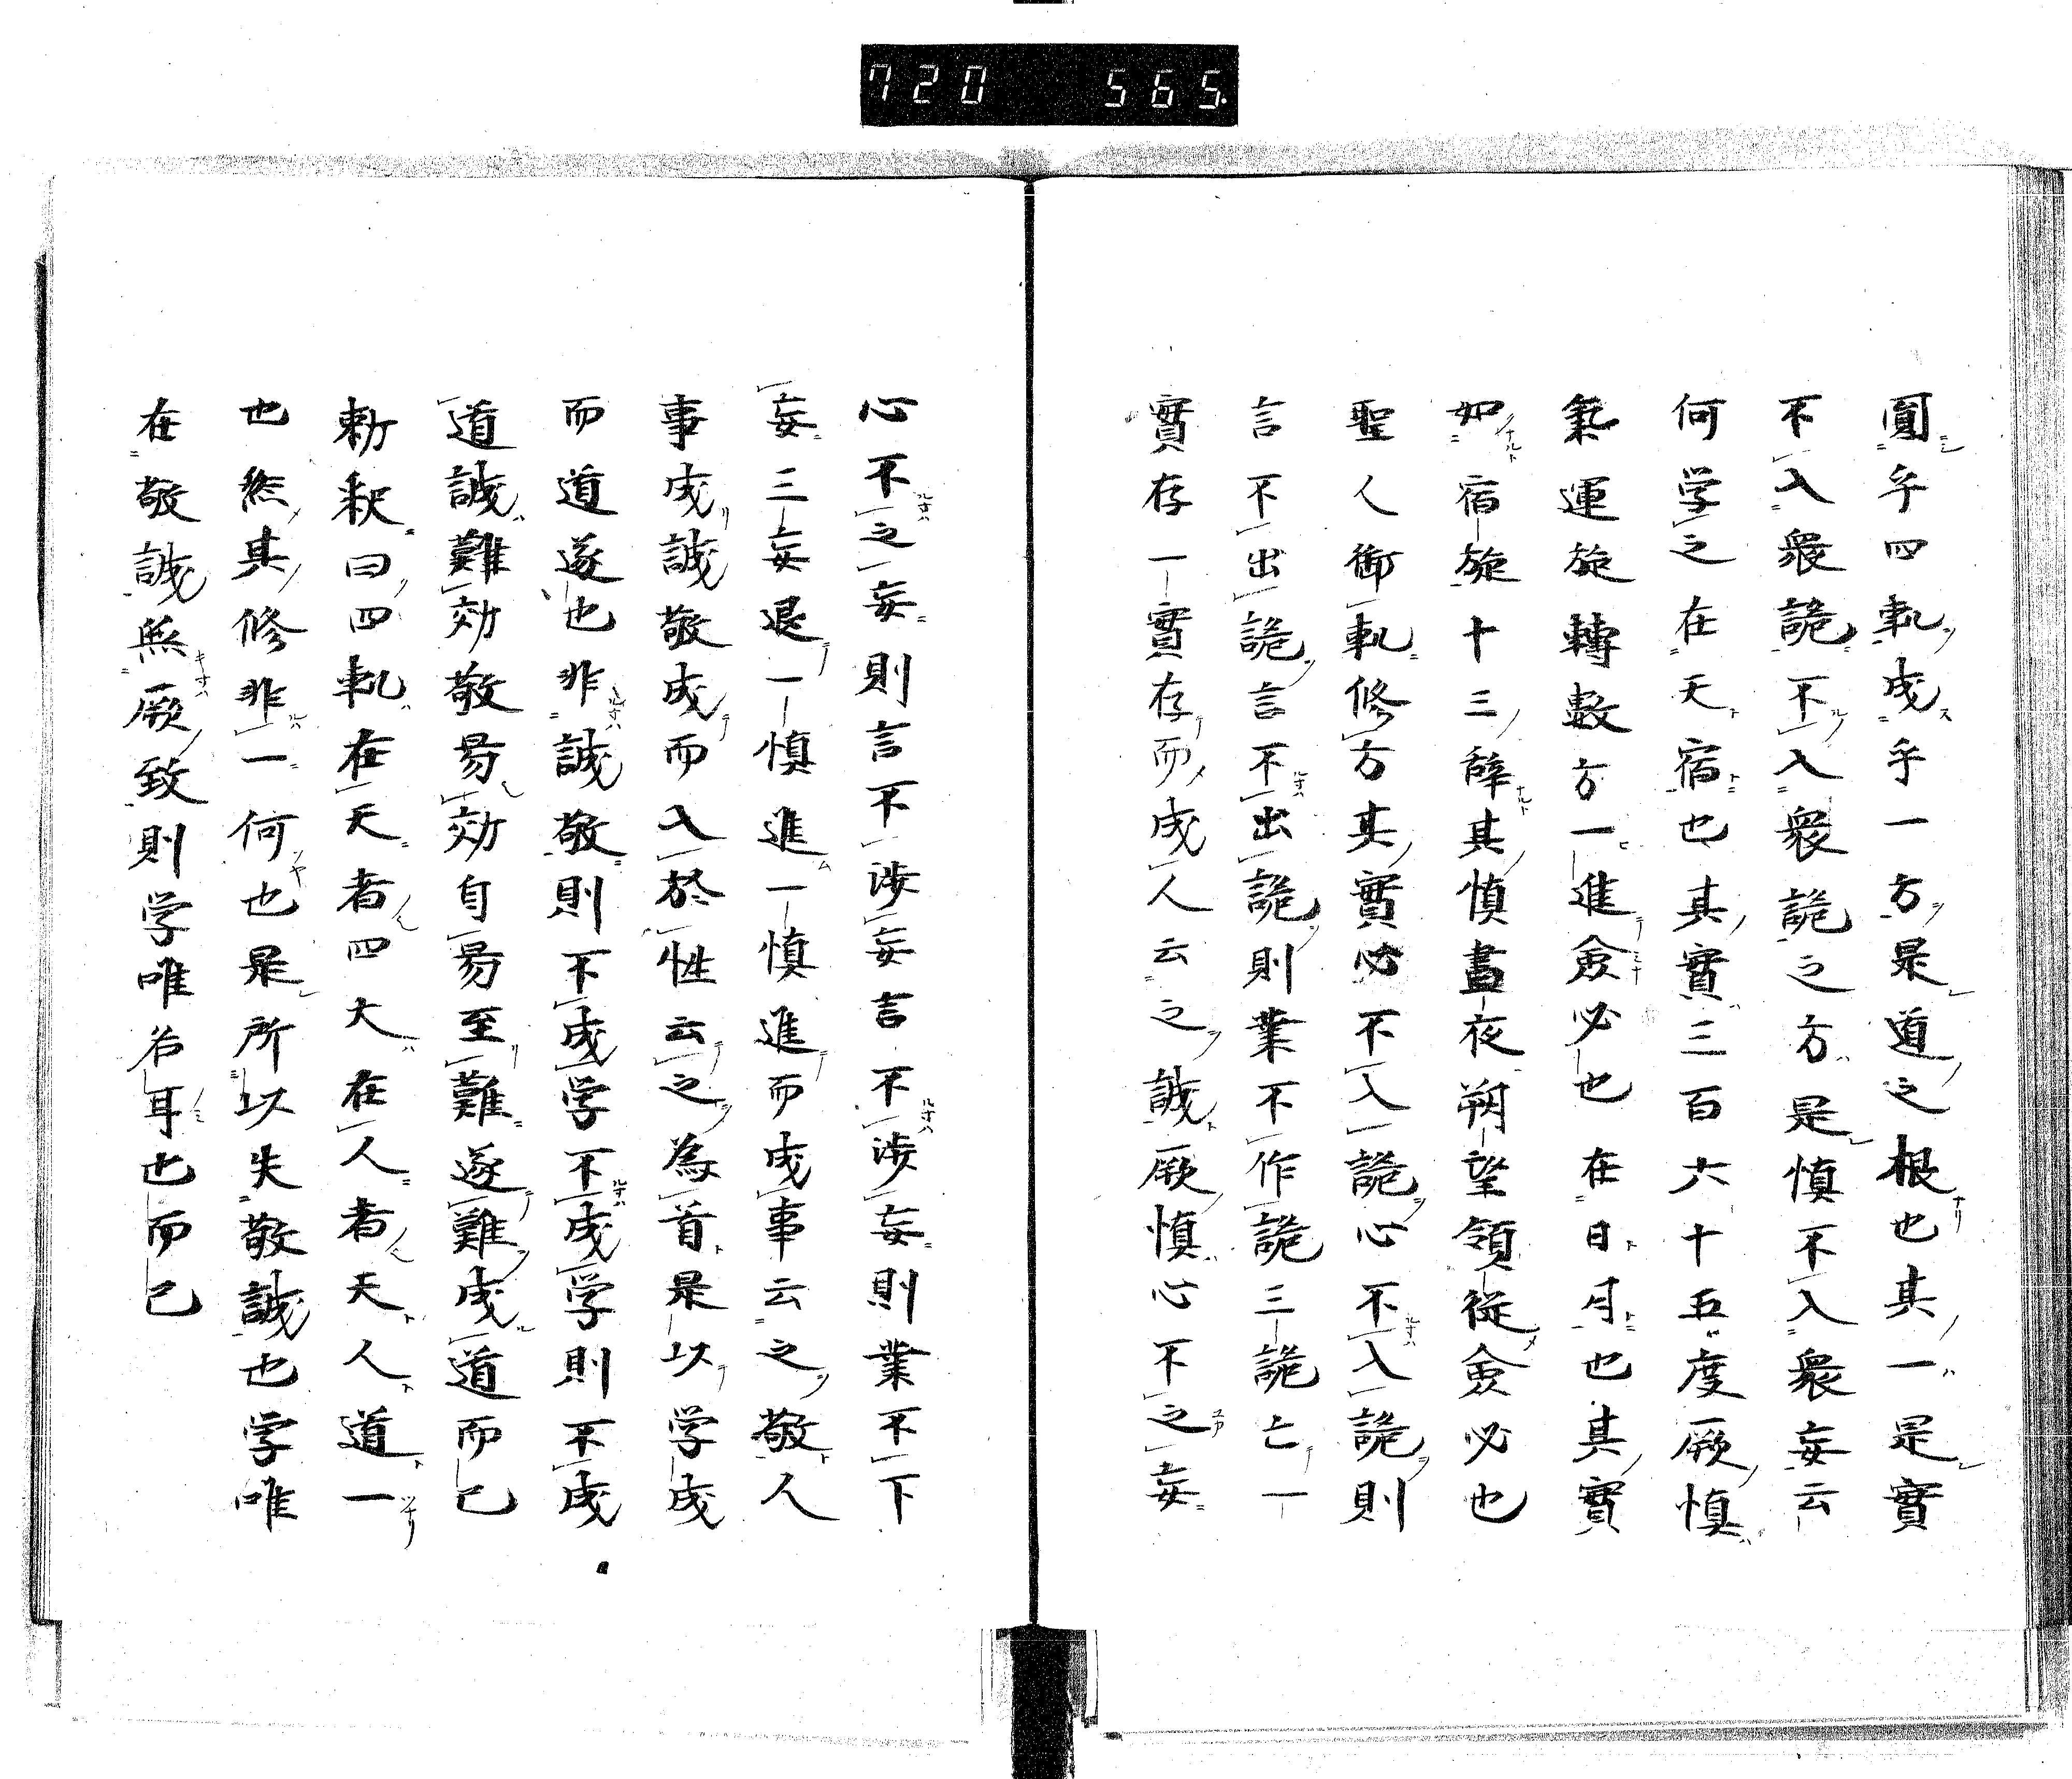 720 565.
圓乎四軋成乎一方是道之根也其一是實
不入衆詭不入衆詭之方是慎不入衆妄云
何学之在天宿也其實三百六十五度厥慎
氣運旋轉數方一進僉必也在日月也其實
如宿旋十三辞其慎晝夜朔望領從僉必也
聖人御軋修方其實必不入詭心不入詭則
言不出詭言不出詭則業不作詭三詭亡一
實存一實存而成人云之誠厥慎心不之妄
心不之妄則言不渉妄言不渉妄則業不下
妄三妄退一慎進一慎進而成事云之敬人
事成誠敬成而入於性云之為首是以学成
而道遂也非誠敬則不成学不成学則不成
道誠難効敬易効自易至難遂難成道而已
勅釈曰四軋在天者四大在人者天人道一
也然其修非一何也是所以失敬誠也学唯
在敬誠無厥致則学唯名耳也而已